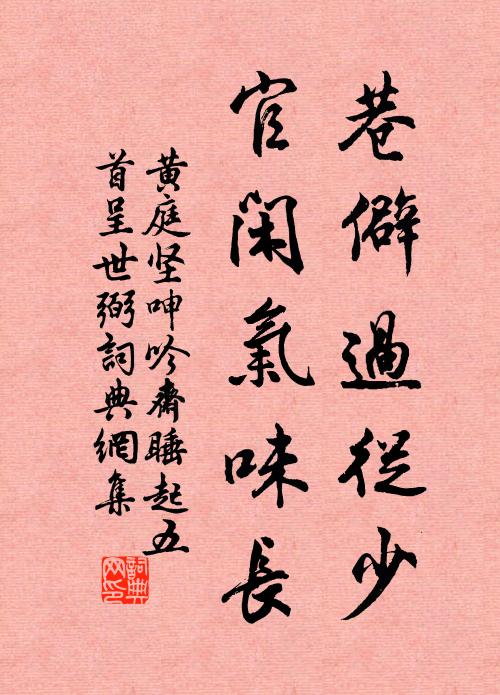 巷僻過從少
官閑氣味長
黄庭坚呻吟齋睡起五
首呈世弼詞典網集
詞典网印